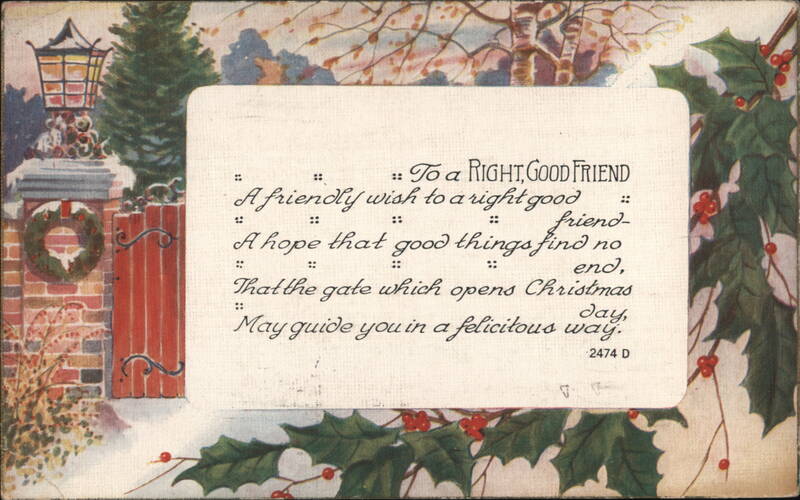 To a RIGHT, GOOD FRIEND
A friendly wish to a right good
friend-
A hope that good things find no
end,
That the gate which opens Christmas
day,
May guide you in a felicitous way.
2474 D